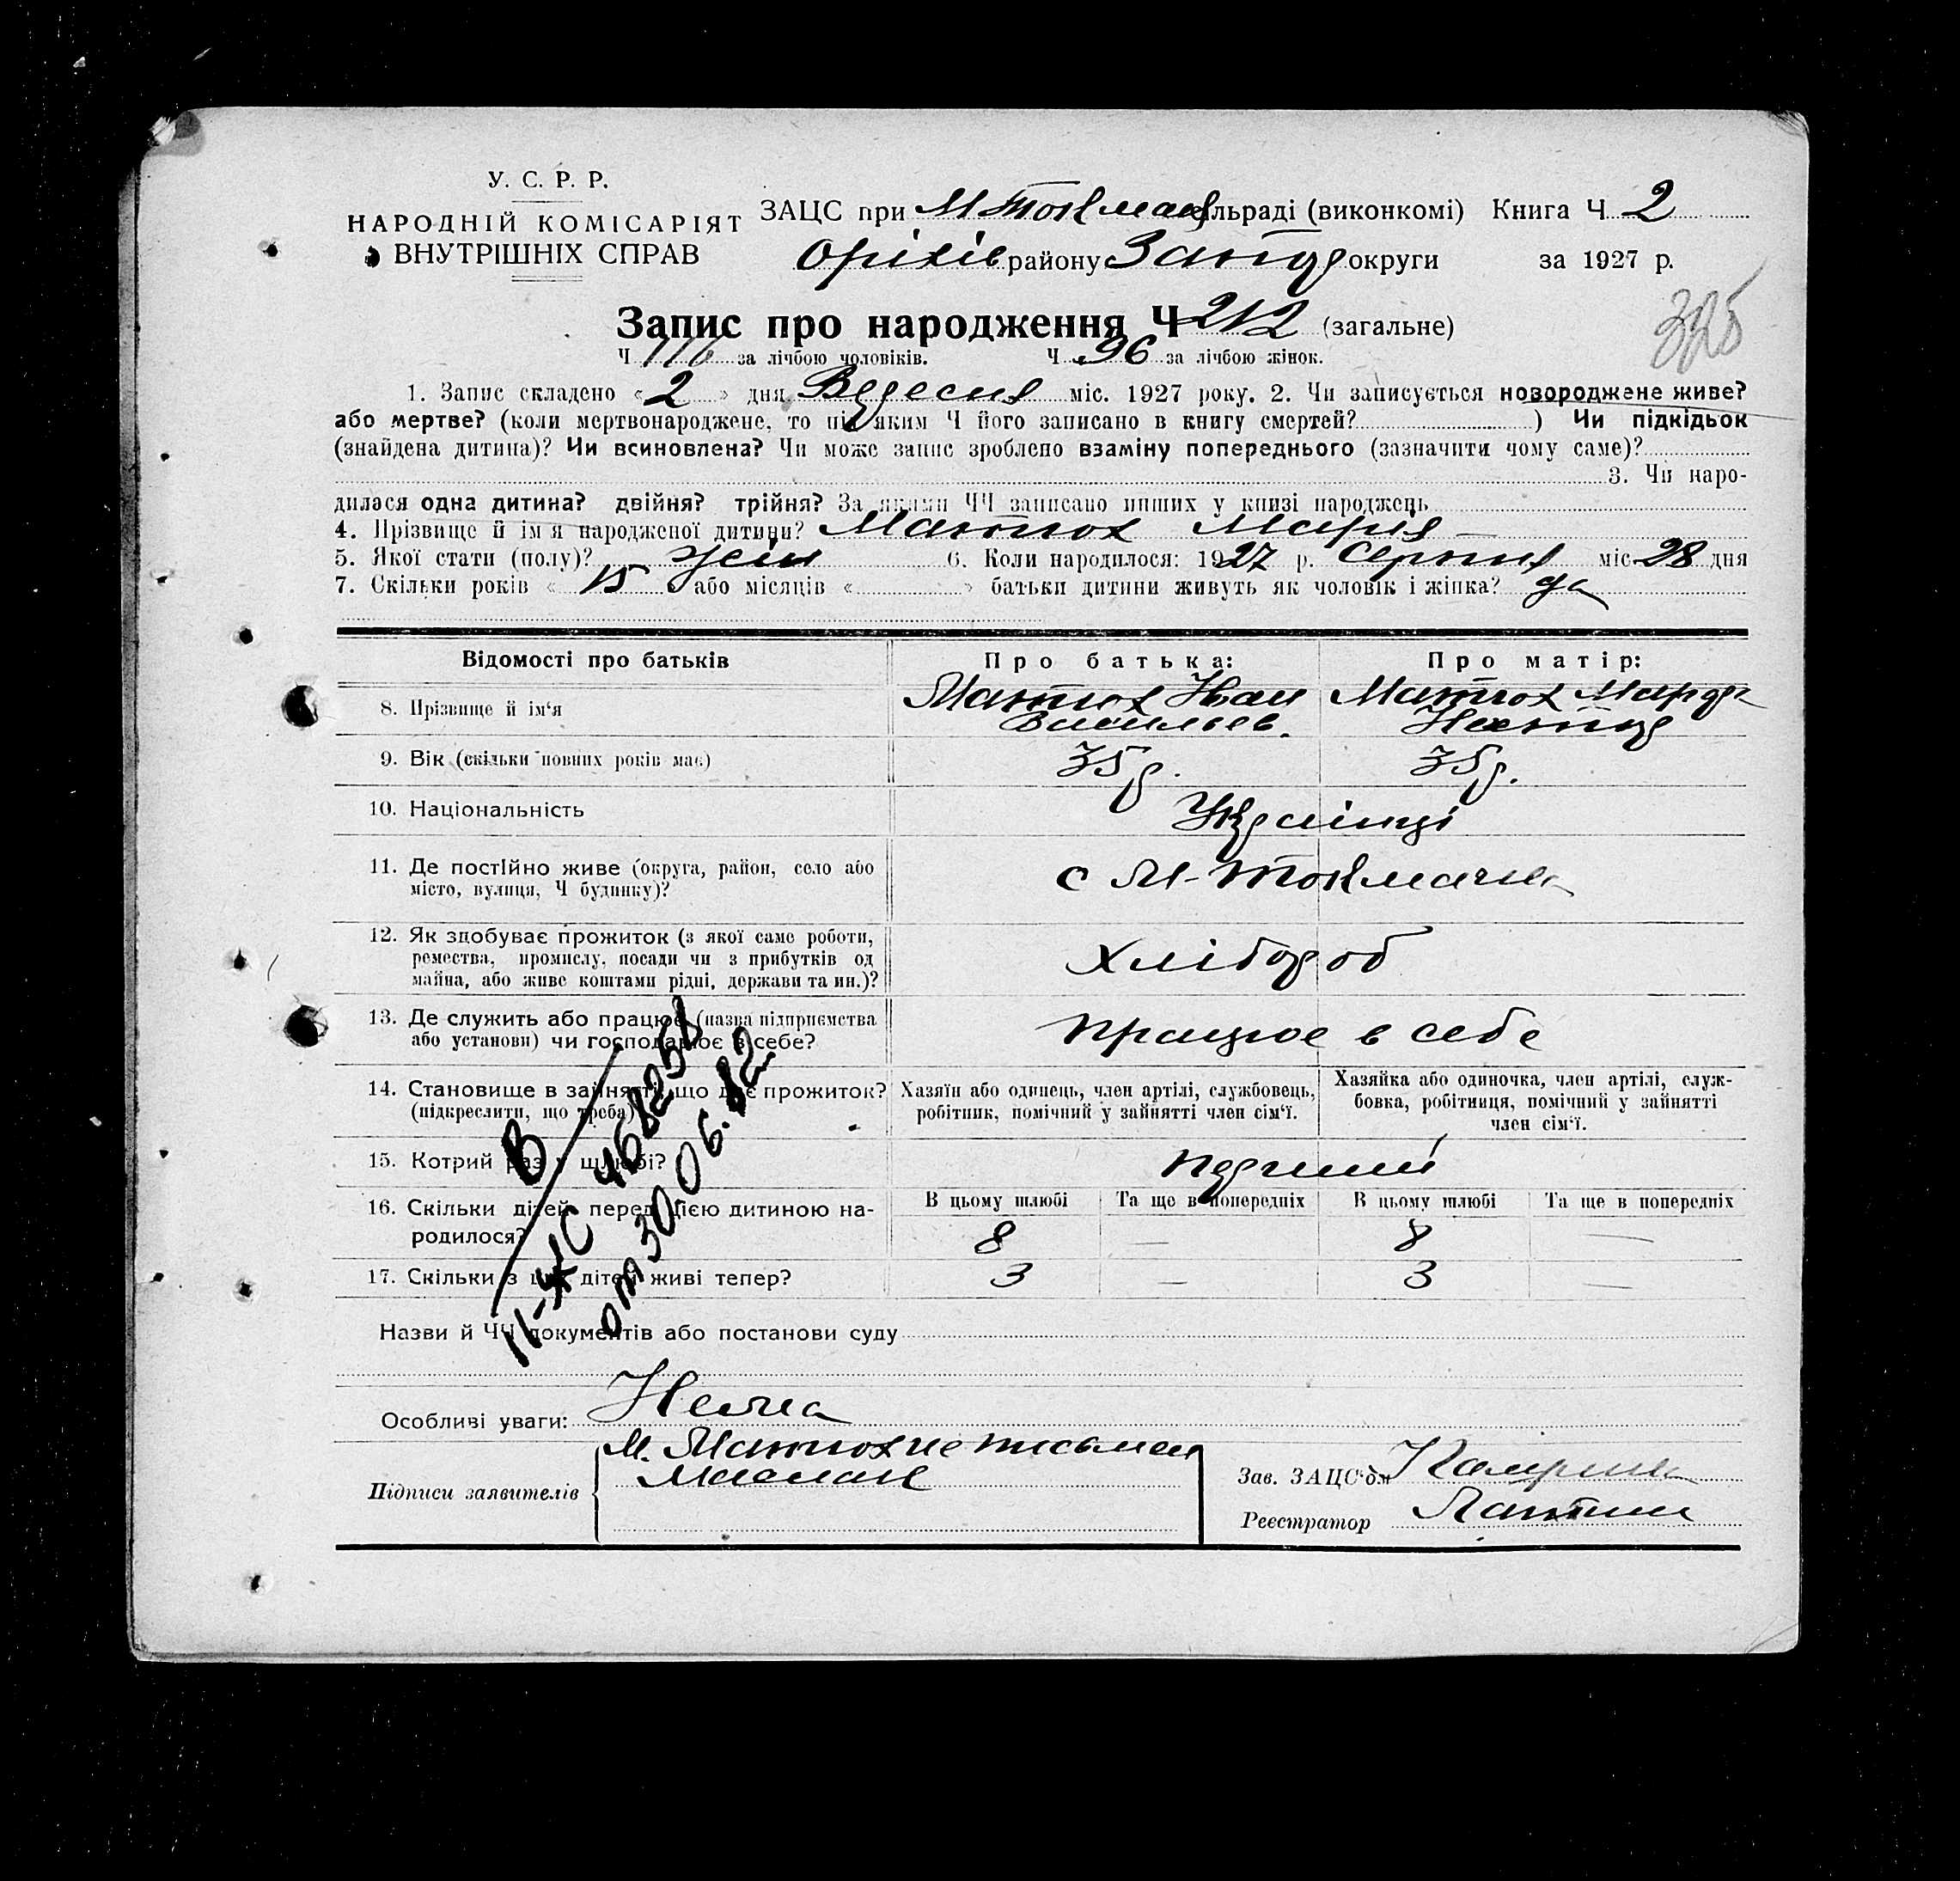 У. С. Р. Р.
НАРОДНІЙ КОМІСАРІЯТ
ВНУТРІШНІХ СПРАВ
ЗАЦС при М Токмач сільраді (виконкомі) Книга Ч 2
Оріхів району Запор округи за 1927 р.
325
Запис про народження Ч 212 (загальне)
Ч 116 за лічбою чоловіків. Ч 96 за лічбою жінок.
1. Запис складено « 2 » дня Вересня міс. 1927 року. 2. Чи записується новороджене живе?
або мертве? (коли мертвонароджене, то під яким Ч його записано в книгу смертей? ) Чи підкідьок
(знайдена дитина)? Чи всиновлена? Чи може запис зроблено взаміну попереднього (зазначити чому саме)?
3. Чи наро-
дилася одна дитина? двійня? трійня? За якими ЧЧ записано инших у книзі народжень
4. Прізвище й ім'я народженої дитини? Матюх Мария
5. Якої стати (полу)? жін 6. Коли народилося: 1927 р. Серпня міс 28 дня
7. Скільки років « 15 » або місяців « » батьки дитини живуть як чоловік і жінка? да
Відомості про батьків Про батька: Про матір:
8. Прізвище й ім'я Матюх Иван Васильев. Матюх Марфа
9. Вік (скільки повних років має) 35 р. 35 р.
10. Національність Українці
11. Де постійно живе (округа, район, село або
місто, вулиця, Ч будинку)? с М-Токмачка
12. Як здобуває прожиток (з якої саме роботи,
ремества, промислу, посади чи з прибутків од
майна, або живе коштами рідні, держави та ин.)? Хлібороб
13. Де служить або працює (назва підприємства
або установи) чи господарює в себе? працює в себе
14. Становище в зайнятті, що дає прожиток?
(підкреслити, що треба)
Хазяїн або одинець, член артілі, службовець,
робітник, помічний у зайнятті член сім'ї.
Хазяйка або одиночка, член артілі, служ-
бовка, робітниця, помічний у зайнятті
член сім'ї.
15. Котрий раз у шлюбі? перший
16. Скільки дітей перед цією дитиною на-
родилося?
В цьому шлюбі Та ще в попередніх В цьому шлюбі Та ще в попередніх
8 — 8 —
17. Скільки з цих дітей живі тепер? 3 — 3 —
В
II-ЖС 4682351
от 30 06.82
Назви й ЧЧ документів або постанови суду
Особливі уваги: Нема
Підписи заявителів М. Матюх не письмен
Зав. ЗАЦС'ом
Реєстратор